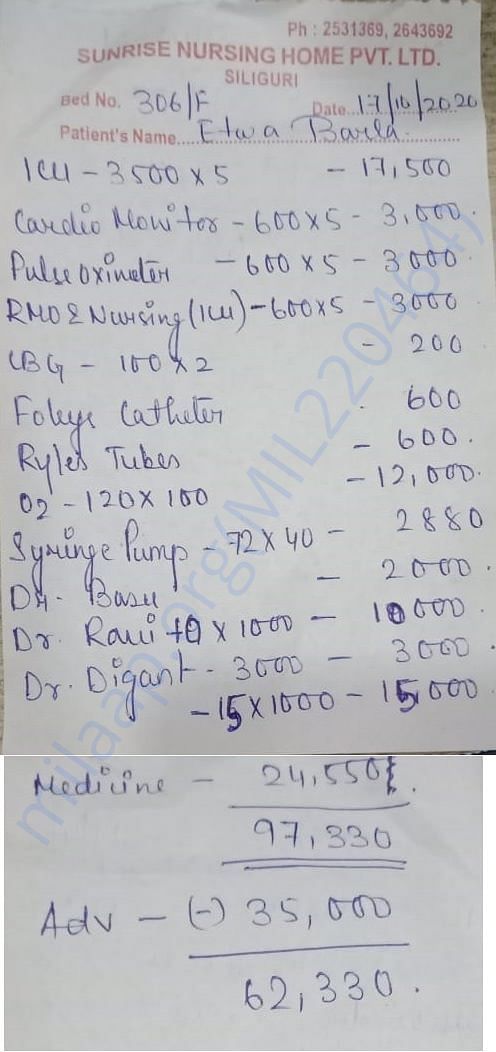 Ph : 2531369, 2643692
SUNRISE NURSING HOME PVT. LTD.
SILIGURI
Bed No. 306/F Date 17/10/2020
Patient's Name Etwa Barla
ICU - 3500 x 5 - 17,500
Cardio Monitor - 600 x 5 - 3,000.
Pulse oximeter - 600 x 5 - 3000.
RMO & Nursing (ICU) - 600x5 - 3000
CBG - 100 x 2 - 200
Foleys Catheter 600
Ryles Tubes - 600.
O2 - 120 x 100 - 12,000.
Syringe Pump - 72 x 40 - 2880
Dr. Basu - 2000.
Dr. Ravi 10 x 1000 - 10000.
Dr. Digant - 3000 - 3000.
- 15 x 1000 - 15000.
Medicine - 24,550.
97,330
Adv - (-) 35,000
62,330.
milaap.org(MIL220464)